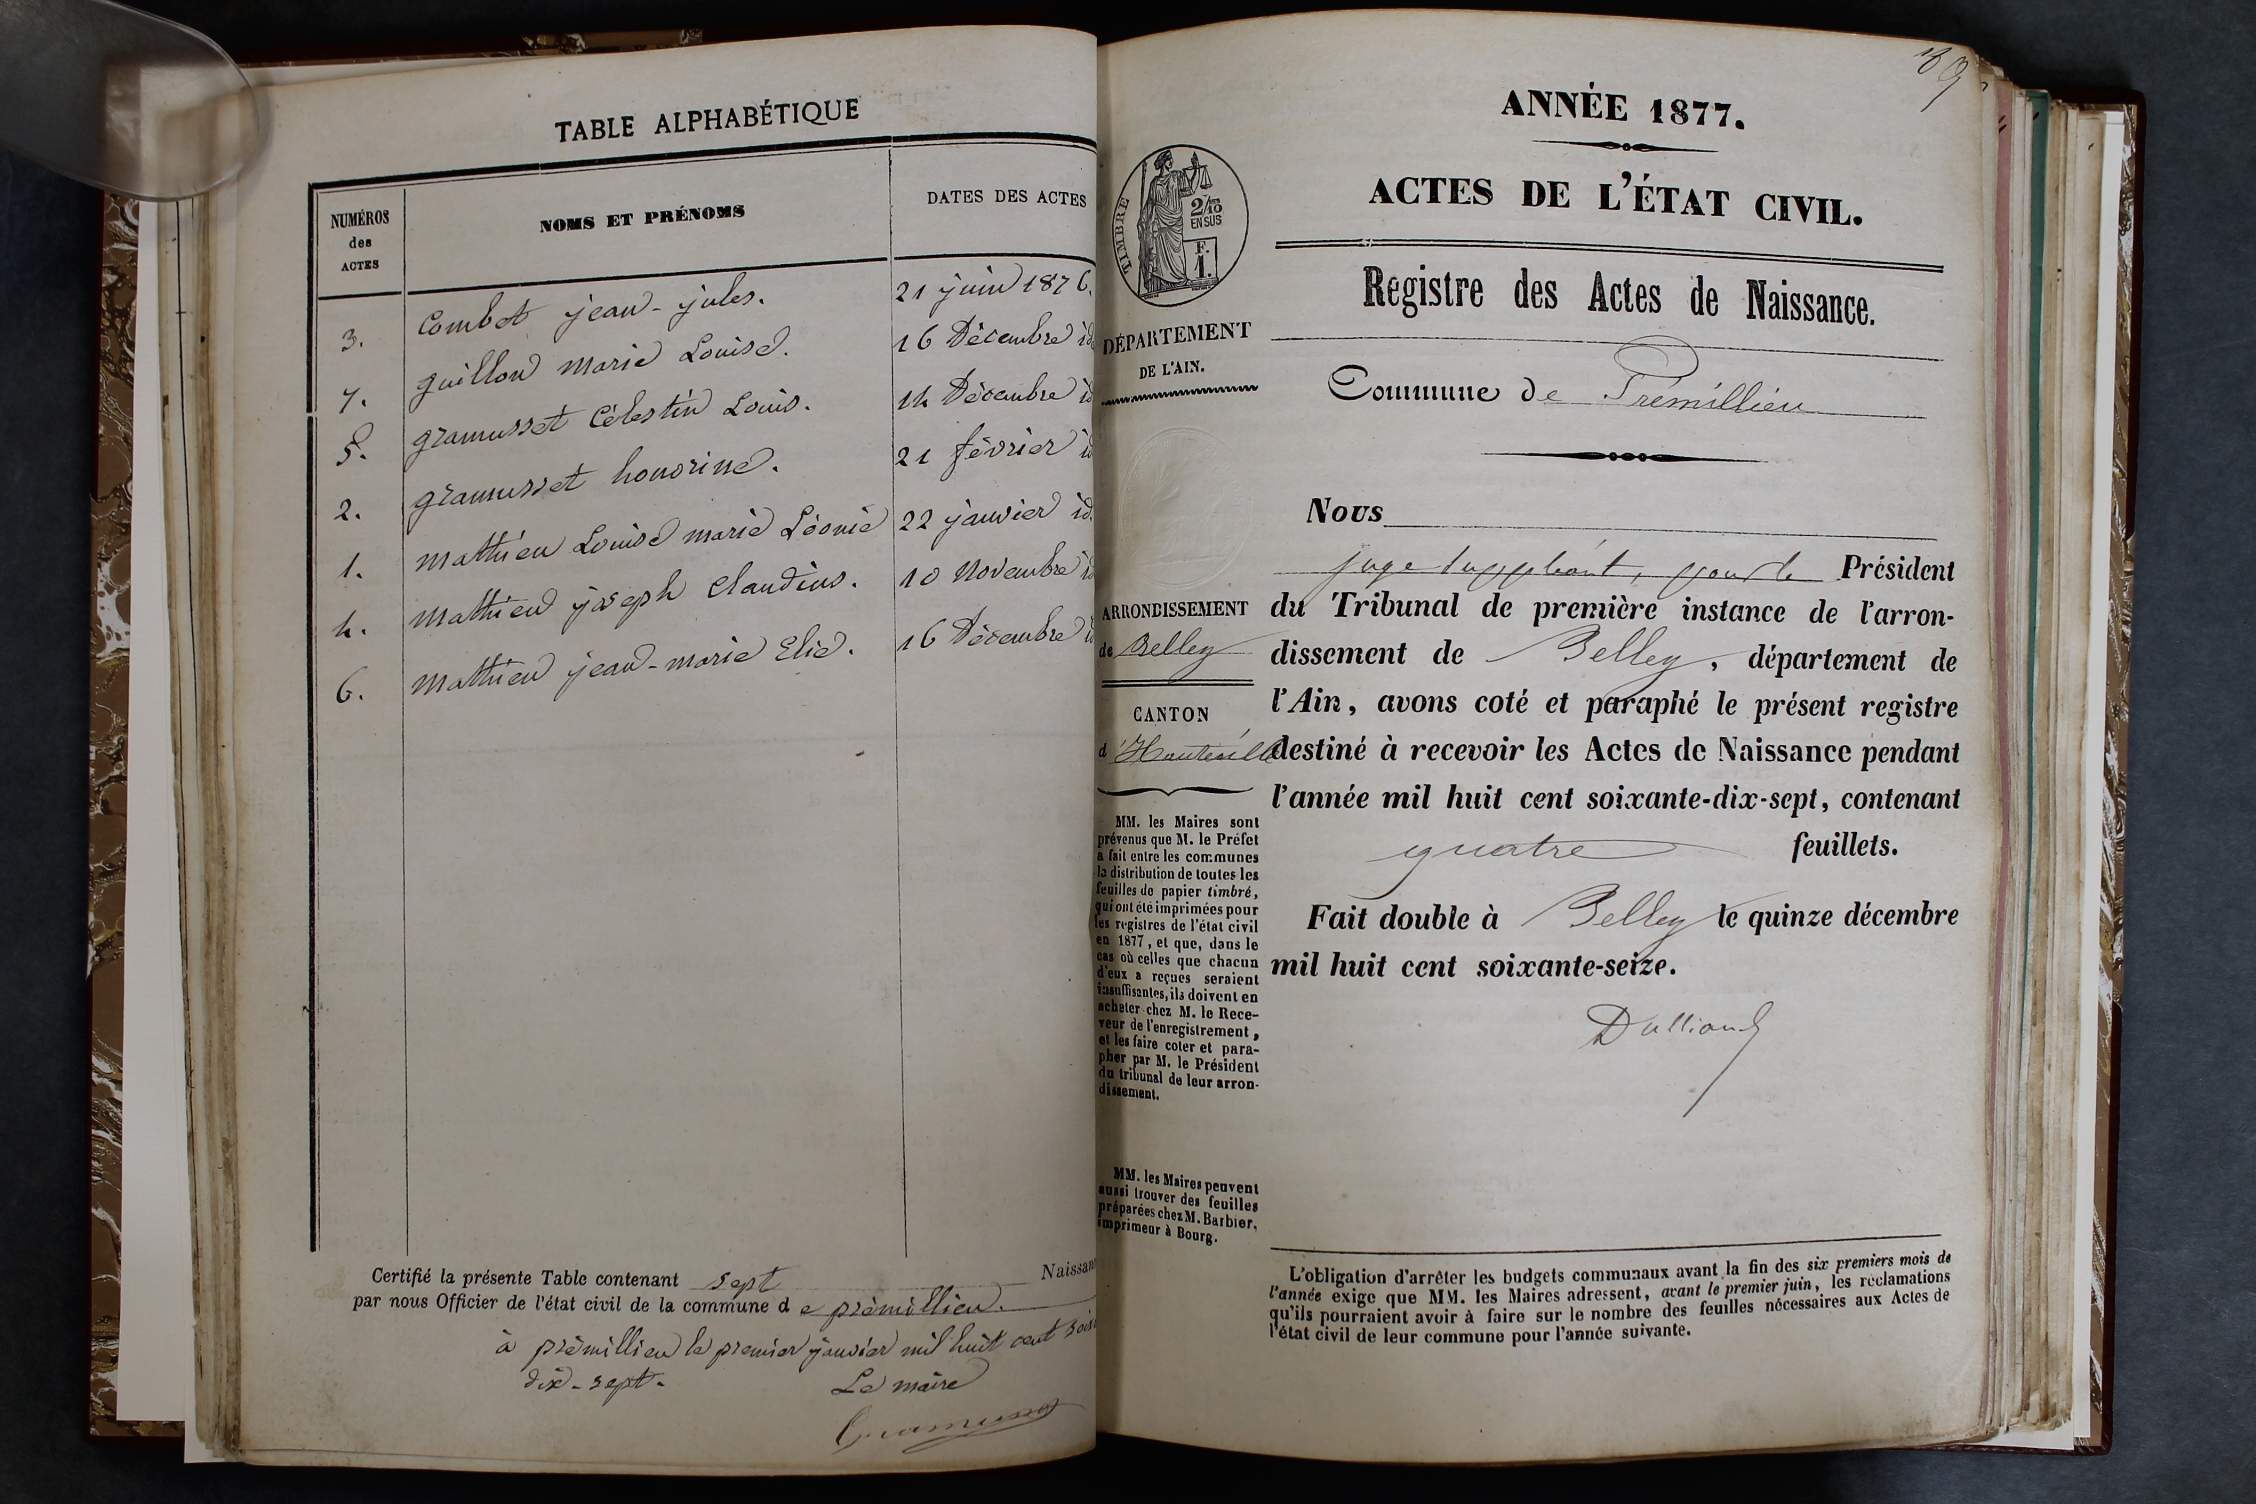 TABLE ALPHABÉTIQUE
NUMÉROS
des
ACTES
NOMS ET PRÉNOMS
DATES DES ACTES
3. Combet jean-jules. 21 juin 1876.
7. guillon marie Louise. 16 Décembre id
5. gramusset Célestin Louis. 14 Décembre id
2. gramusset honorine. 21 février id
1. mathieu Louise marie Léonie 22 janvier id.
4. mathieu joseph claudius. 10 novembre id
6. mathieu jean-marie Elie. 16 Décembre id
Certifié la présente Table contenant sept Naissan
par nous Officier de l'état civil de la commune de prèmillieu.
à prèmillieu le premier janvier mil huit cent soix
dix-sept. Le maire
Gramusset
89
ANNÉE 1877.
ACTES DE L'ÉTAT CIVIL.
Registre des Actes de Naissance.
Commune de Prémillieu
TIMBRE
2/10
EN SUS
F.
1.
DÉPARTEMENT
DE L'AIN.
ARRONDISSEMENT
de Belley
CANTON
d'Hauteville
MM. les Maires sont
prévenus que M. le Préfet
a fait entre les communes
la distribution de toutes les
feuilles de papier timbré,
qui ont été imprimées pour
les registres de l'état civil
en 1877, et que, dans le
cas où celles que chacun
d'eux a reçues seraient
insuffisantes, ils doivent en
acheter chez M. le Rece-
veur de l'enregistrement,
et les faire coter et para-
pher par M. le Président
du tribunal de leur arron-
dissement.
MM. les Maires peuvent
aussi trouver des feuilles
préparées chez M. Barbier,
imprimeur à Bourg.
Nous
juge suppléant, pour le Président
du Tribunal de première instance de l'arron-
dissement de Belley, département de
l'Ain, avons coté et paraphé le présent registre
destiné à recevoir les Actes de Naissance pendant
l'année mil huit cent soixante-dix-sept, contenant
quatre feuillets.
Fait double à Belley le quinze décembre
mil huit cent soixante-seize.
Dulliand
L'obligation d'arrêter les budgets communaux avant la fin des six premiers mois de
l'année exige que MM. les Maires adressent, avant le premier juin, les réclamations
qu'ils pourraient avoir à faire sur le nombre des feuilles nécessaires aux Actes de
l'état civil de leur commune pour l'année suivante.